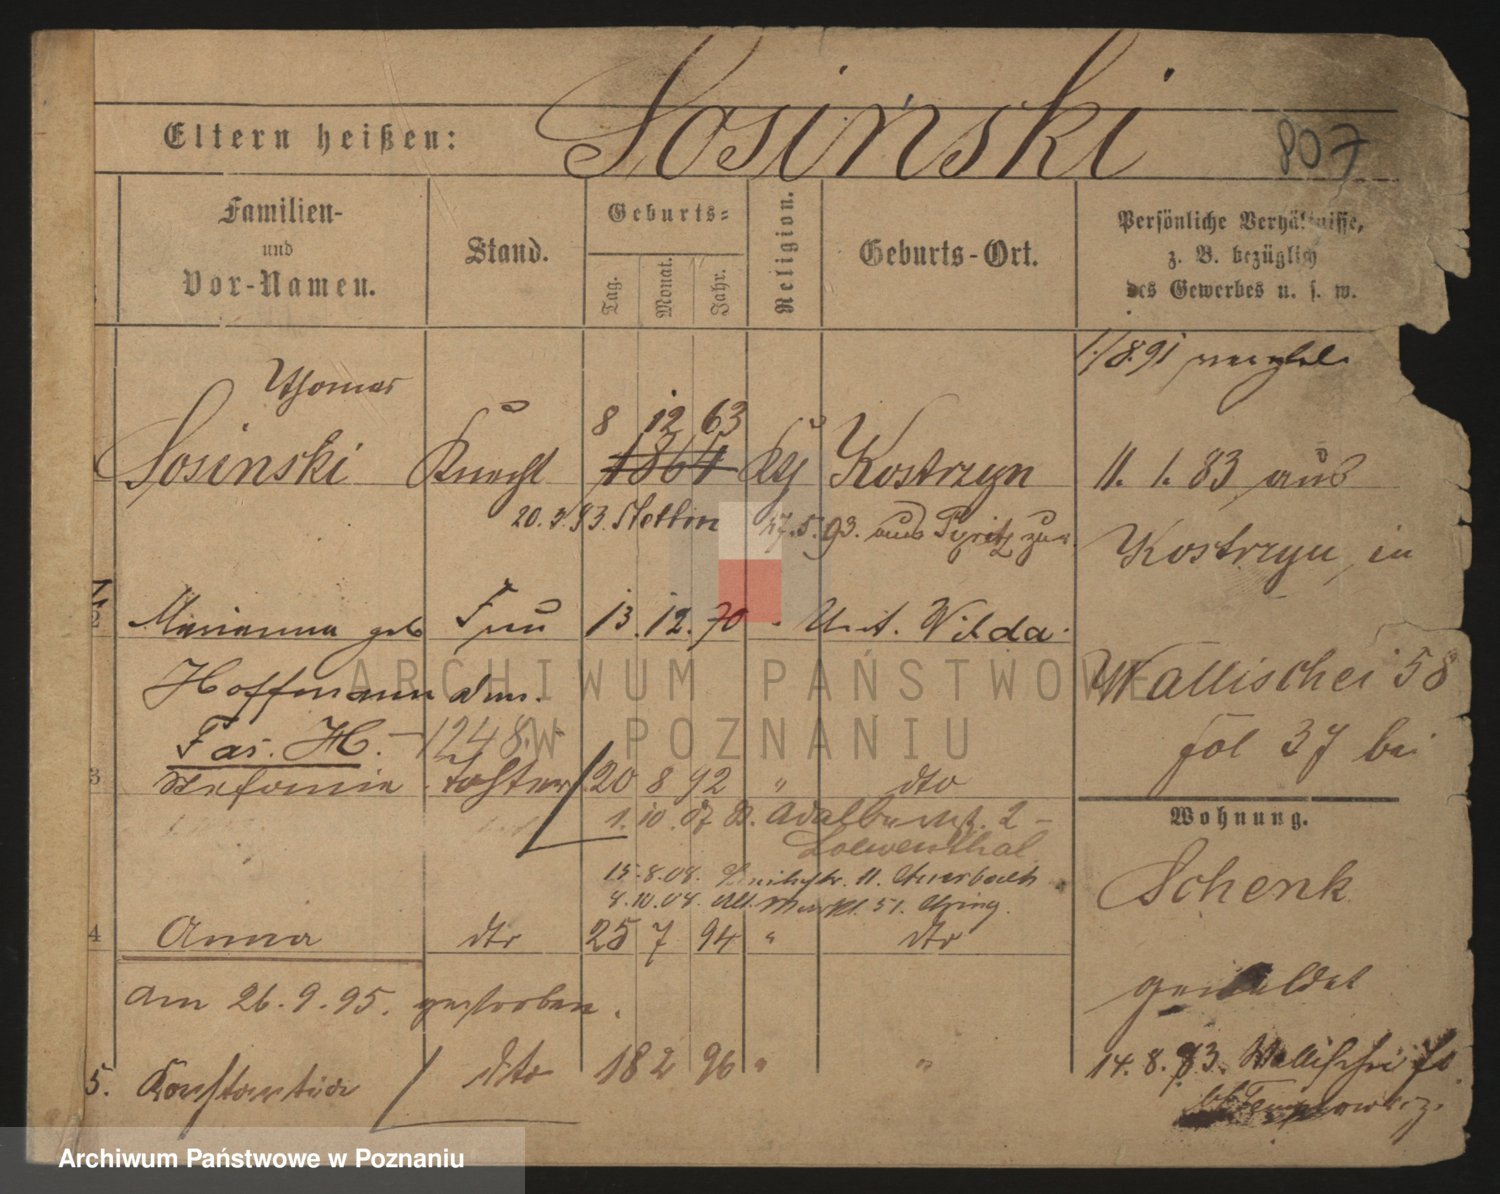 Sosinski
807
Eltern heißen:
Familien-
und
Vor-Namen.
Stand.
Geburts-
Tag.
Monat.
Jahr.
Religion.
Geburts-Ort.
Persönliche Verhältnisse,
z. B. bezüglich
des Gewerbes u. s. w.
1/8.91
Thomas
8 12 63
Sosinski Knecht 1864 Kg Kostrzyn 11. 1. 83 aus
20.3.93. Stettin 17.5.93. aus Pyritz zur.
Kostrzyn in
2 Marianna geb Frau 13. 12. 70 Unt. Wilda.
Hoffmann
Wallischei 58
Fas. H. - 1248.
fol 37 bei
3 Stefanie Tochter 20 8 92 " dto
1. 10. 07 Adalbertst. 2 -
Loewenthal
Wohnung.
15.8.08. 11. Auerbach
8.10.08. Alt. Markt. 51.
Schenk
4 Anna dto 25 7 94 " dto
am 26.9.95. gestorben.
gemeldet
5. Konstantia dto 18 2 96 " "
14.8.93. Wallischei
ARCHIWUM PAŃSTWOWE
W POZNANIU
Archiwum Państwowe w Poznaniu